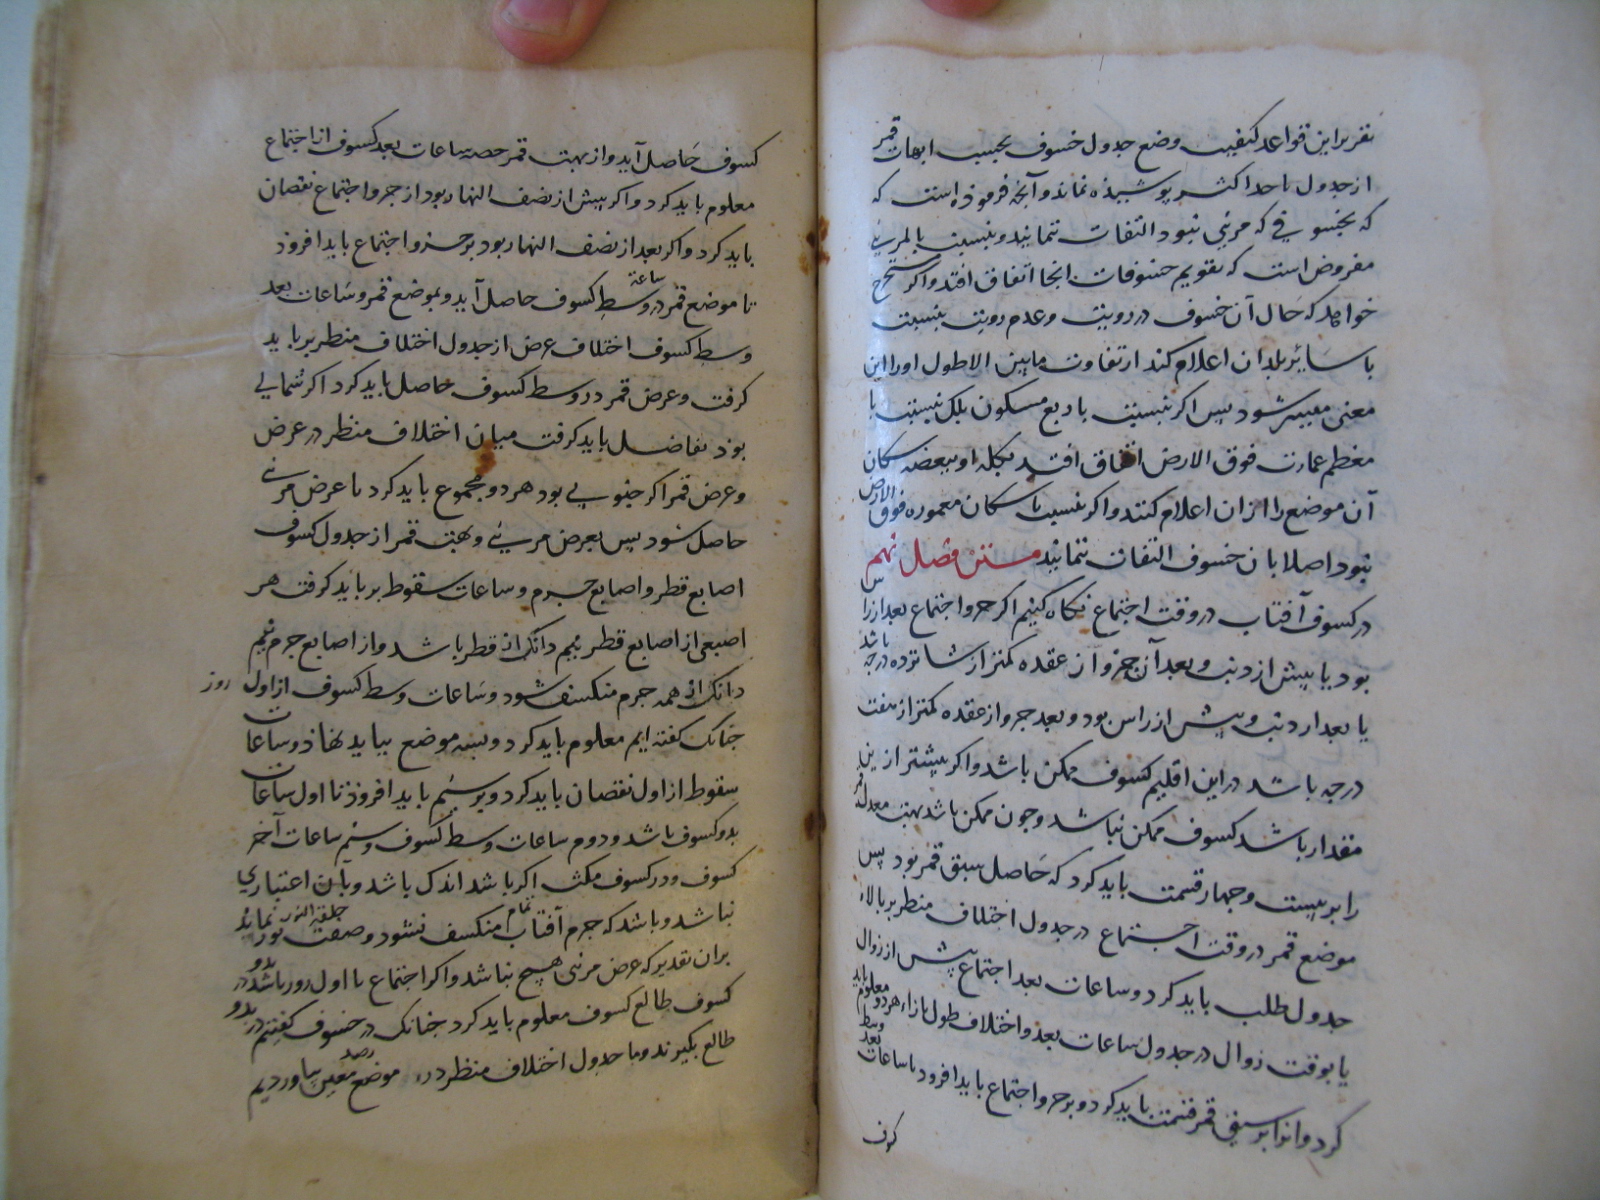 تقریر این قواعد کیفیت وضع جدول خسوف بحسب ابهات قمر
از جدول تا حد اکثر پوشیده نماند و آنچه فرموده است که
که بخسوفی که مرئی نبود التفات ننمایند و بنسبت با لمرئی
مفروض است که تقویم خسوفات انجا اتفاق افتد و اکر مستخرج
خواهد که حال آن خسوف در رویت و عدم رویت بنسبت
با سایر بلدان اعلام کند از تفاوت مابین الاطول او را این
معنی میسر شود پس اکر بنسبت با ربع مسکون بلک بنسبت با
معظم عمارت فوق الارض اتفاق افتد بکله او ببعضه سکان
آن موضع را ازان اعلام کنند و اکر بنسبت با سکان معموره فوق الارض
نبود اصلا بان خسوف التفات ننمایند متن فصل نهم
در کسوف آفتاب در وقت اجتماع نکاه کنیم اکر جزو اجتماع بعد از راس
بود یا پیش از ذنب و بعد آن جزو از عقده کمتر از شانزده درجه باشد
یا بعد از ذنب و پیش از راس بود و بعد جزو از عقده کمتر از هفت
درجه باشد در این اقلیم کسوف ممکن باشد و اکر بیشتر ازین
مقدار باشد کسوف ممکن نباشد و چون ممکن باشد بهت معدل قمر
را بر بیست و چهار قسمت باید کرد که حاصل سبق قمر بود پس
موضع قمر در وقت اجتماع در جدول اختلاف منظر بر بالاء
جدول طلب باید کرد و ساعات بعد اجتماع پیش از زوال
یا بوقت زوال در جدول ساعات بعد و اختلاف طول بازاء هر دو معلوم باید
کرد و انرا بر سبق قمر قسمت باید کرد و بر جزو اجتماع باید افزود تا ساعات بعد وسط
کسوف
کسوف حاصل آید و از بهت قمر حصه ساعات بعد کسوف از اجتماع
معلوم باید کرد و اکر پیش از نصف النهار بود از جزو اجتماع نقصان
باید کرد و اکر بعد از نصف النهار بود بر جزو اجتماع باید افزود
تا موضع قمر در ساعة وسط کسوف حاصل آید و بموضع قمر و ساعات بعد
وسط کسوف اختلاف عرض از جدول اختلاف منظر بر باید
کرفت و عرض قمر در وسط کسوف حاصل باید کرد اکر شمالی
بود تفاضل باید کرفت میان اختلاف منظر در عرض
و عرض قمر اکر جنوبی بود هر دو مجموع باید کرد تا عرض مرئی
حاصل شود پس بعرض مرئی و بهت قمر از جدول کسوف
اصابع قطر و اصابع جرم و ساعات سقوط بر باید کرفت هر
اصبعی از اصابع قطر نیم دانک از قطر باشد و از اصابع جرم نیم
دانک از همه جرم منکسف شود و ساعات وسط کسوف از اول روز
چنانک کفته ایم معلوم باید کرد و بسه موضع بباید نهاد و ساعات
سقوط از اول نقصان باید کرد و بر سیم باید افزود تا اول ساعات
بدو کسوف باشد و دوم ساعات وسط کسوف و سیم ساعات آخر
کسوف و در کسوف مکث اکر باشد اندک باشد و بآن اعتباری
نباشد و باشد که جرم آفتاب تمام منکسف نشود و صفت حلقة النور نماید
بران تقدیر که عرض مرئی هیچ نباشد و اکر اجتماع با اول روز باشد در بدو
کسوف طالع کسوف معلوم باید کرد چنانک در خسوف کفتیم در بدو
طالع بکیرند و ما جدول اختلاف منظر در موضع رصد معین بیاوردیم